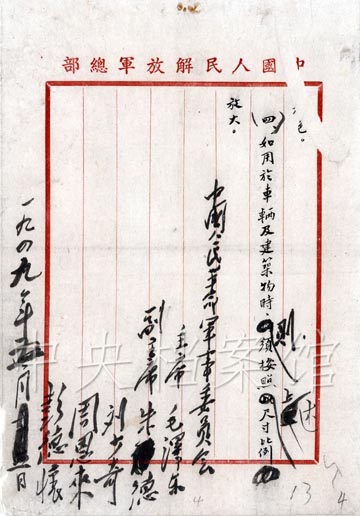 中國人民解放軍總部
色。
(四)如用於車輛及建築物時，則須按照上述尺寸比例
放大。
中國人民革命軍事委員会
主席 毛澤東
副主席 朱德
刘少奇
周恩來
彭德懷
一九四九年 月 日
中央档案馆
13
4
4